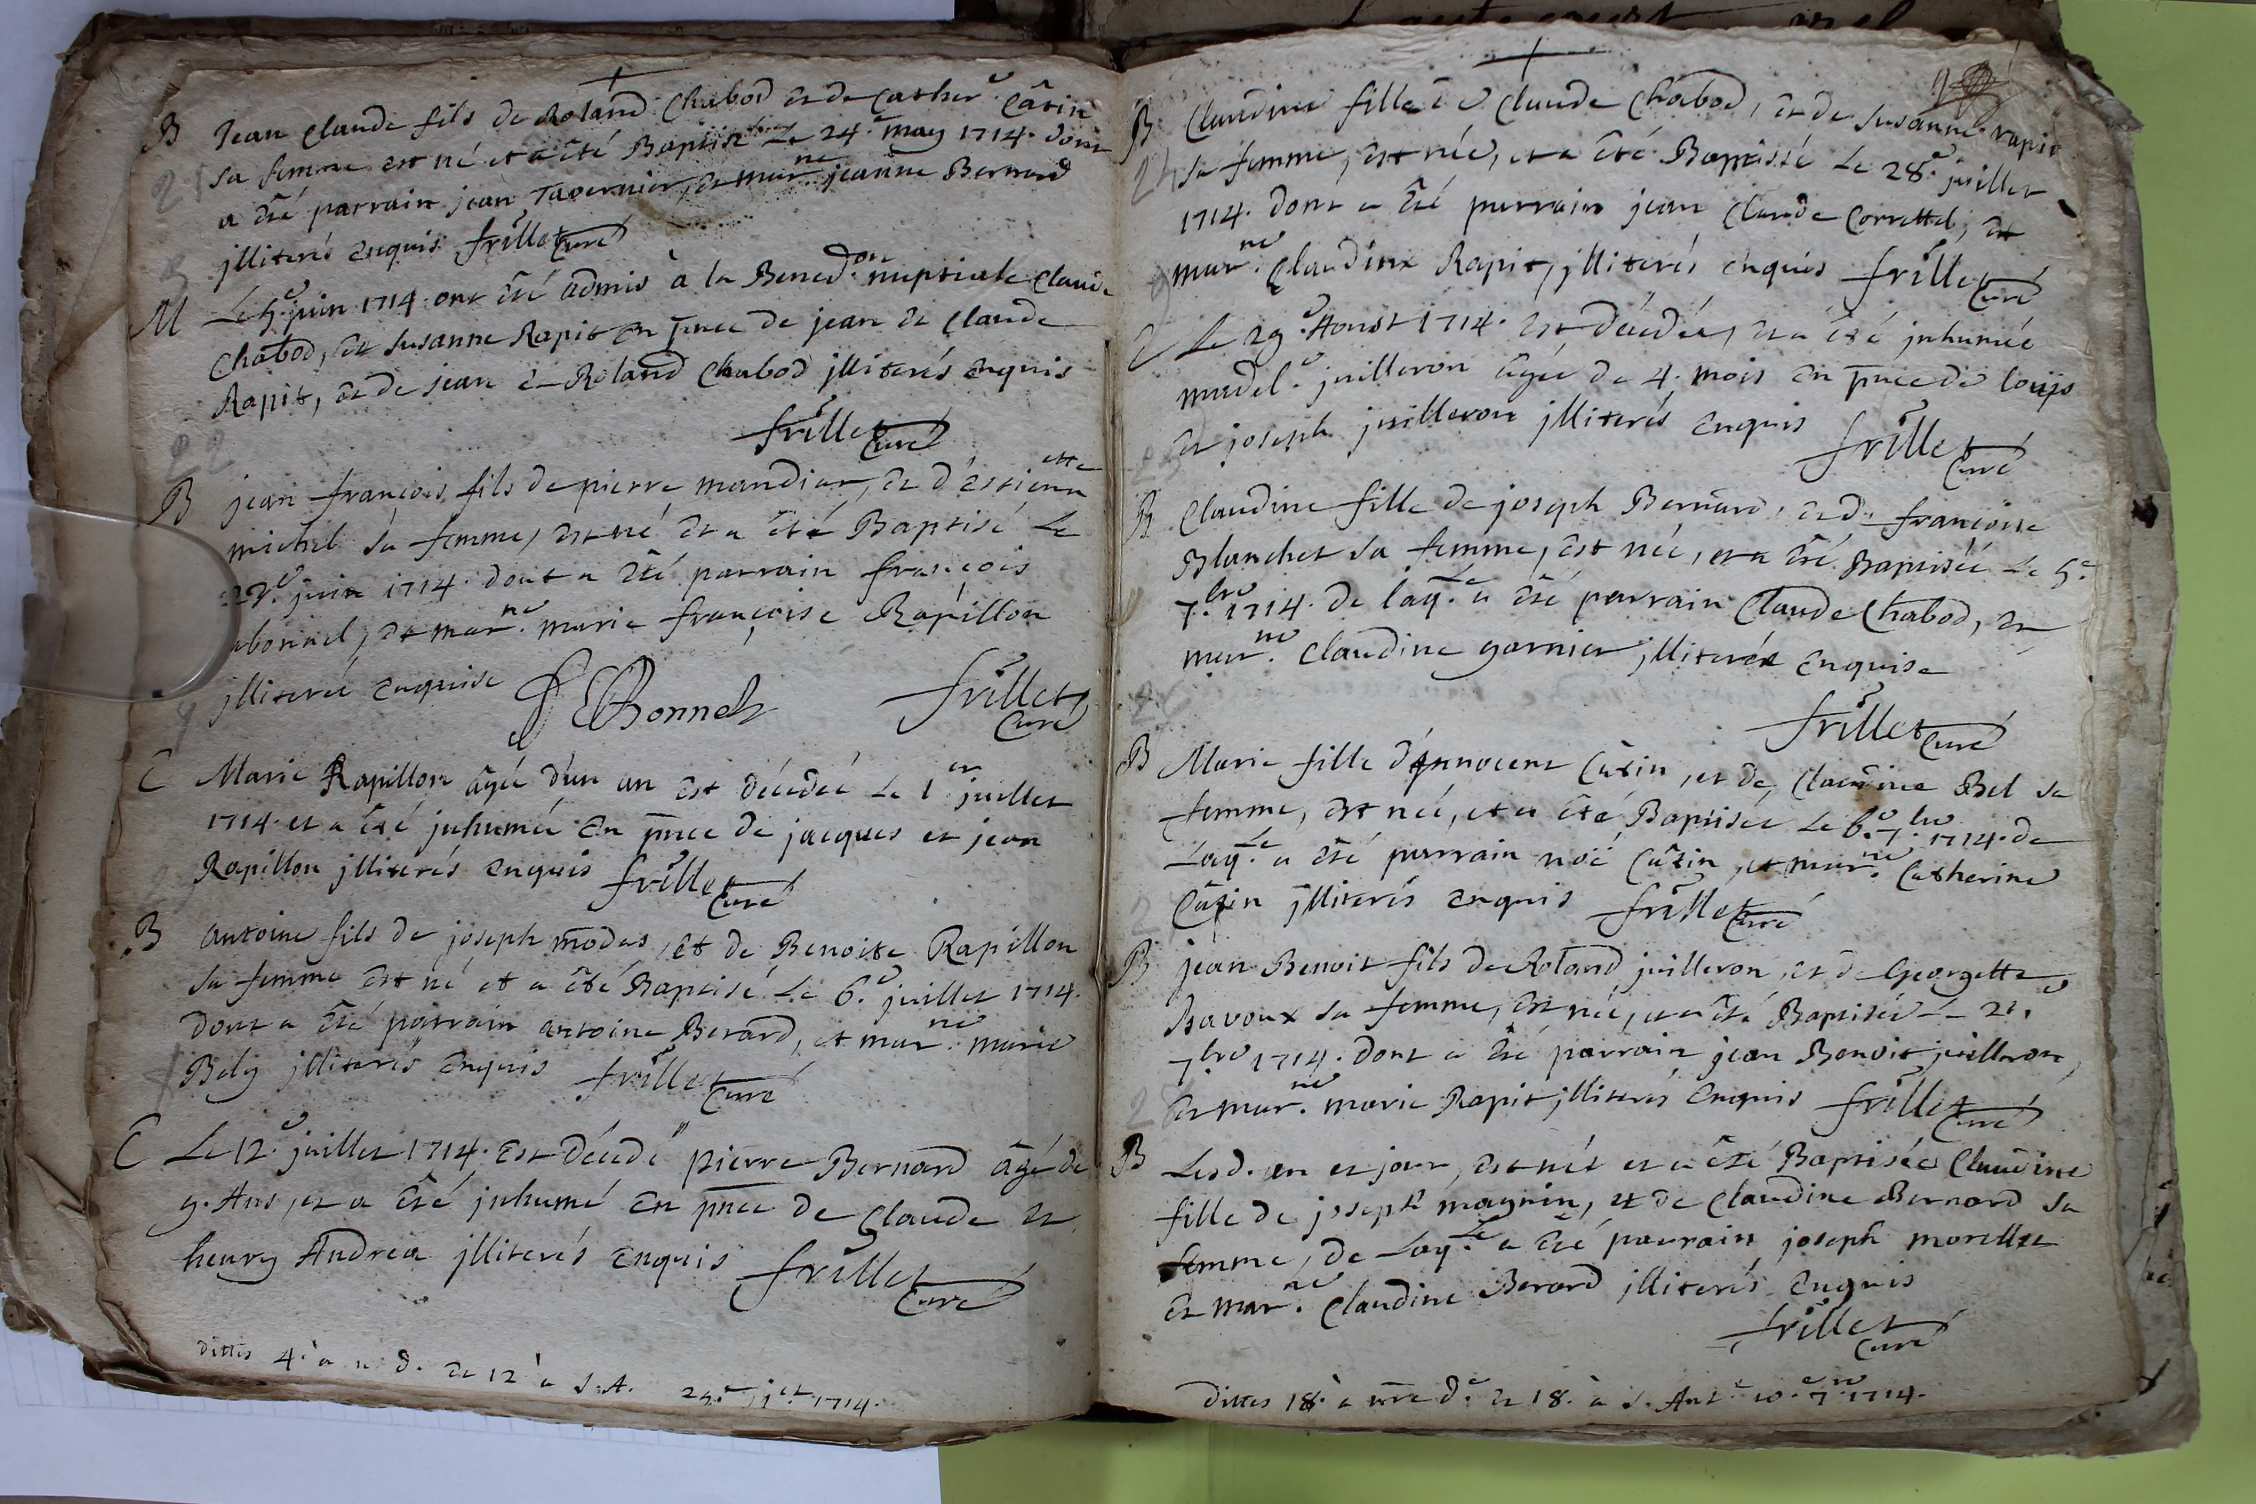 B Jean Claude fils de Roland Chabod et de Cather.e Câtin
sa femme est né et a été Baptisé Le 24.e may 1714. dont
a été parrain jean Tavernier, et mar.ne jeanne Bernard
jlliterés enquis frillet Curé
M Le 5.e juin 1714. ont été admis à la Bened.on nuptiale Claude
Chabod, et Susanne Rapit en pnce de jean et Claude
Rapit, et de jean et Roland Chabod jlliterés enquis
frillet Curé
22
B jean françois, fils de pierre mandier, et d'estienn ette
michel sa femme, est né et a été Baptisé Le
juin 1714. dont a été parrain françois
bonnel, et mar.ne marie françoise Rapillon
jlliterée enquise Bonnel frillet Curé
C Marie Rapillon âgée d'un an est décedée Le 1.er juillet
1714. et a été jnhumée en pnce de jacques et jean
Rapillon jlliterés enquis frillet Curé
B antoine fils de joseph modas, et de Benoite Rapillon
sa femme est né et a été Baptisé Le 6.e juillet 1714.
dont a été parrain antoine Berard, et mar.ne marie
Bely jlliterés enquis frillet Curé
C Le 12.e juillet 1714. est décedé pierre Bernard âgé de
9. Ans, et a été jnhumé en pnce de Claude et
henry Andrea jlliterés enquis frillet Curé
dittes 4. à n. d. et 12 à S. A. 1714.
B. Claudine fille de Claude Chabod, et de Susanne rapit
24 sa femme, est née, et a été Baptissé Le 28.e juillet
1714. dont a été parrain jean Claude Correttel, et
mar.ne Claudine Rapit, jlliterés enquis frillet Curé
C Le 29.e Aoust 1714. est décedée, et a été jnhumée
madel.e juilleron âgée de 4. mois en pnce de louijs
et joseph juilleron jlliterés enquis frillet Curé
B Claudine fille de joseph Bernard, et de françoise
Blanchet sa femme, est née, et a été Baptisée Le 5.e
7.bre 1714. de laq.le a été parrain Claude Chabod, et
mar.ne Claudine garnier, jlliterée enquise
frillet Curé
B Marie fille d'jnnocent Câtin, et de Claudine Bel sa
femme, est née, et a été Baptisée Le 6.e 7.bre 1714. de
Laq.le a été parrain noë Câtin, et mar.ne Catherine
Câtin jlliterés enquis frillet Curé
B jean Benoit fils de Roland juilleron, et de Georgette
Bavoux sa femme, est née, et a été Baptisée Le 21.e
7bre 1714. dont a été parrain jean Benoit juilleron,
et mar.ne marie Rapit jlliterés enquis frillet Curé
B Lesd. an et jour, est née et a été Baptisée Claudine
fille de joseph magnin, et de Claudine Bernard sa
femme, de Laq.le a été parrain joseph morellet
et mar.ne Claudine Berard jlliterés enquis
frillet Curé
dittes 18. à nre d.e et 18. à S. Ant.e 1714.